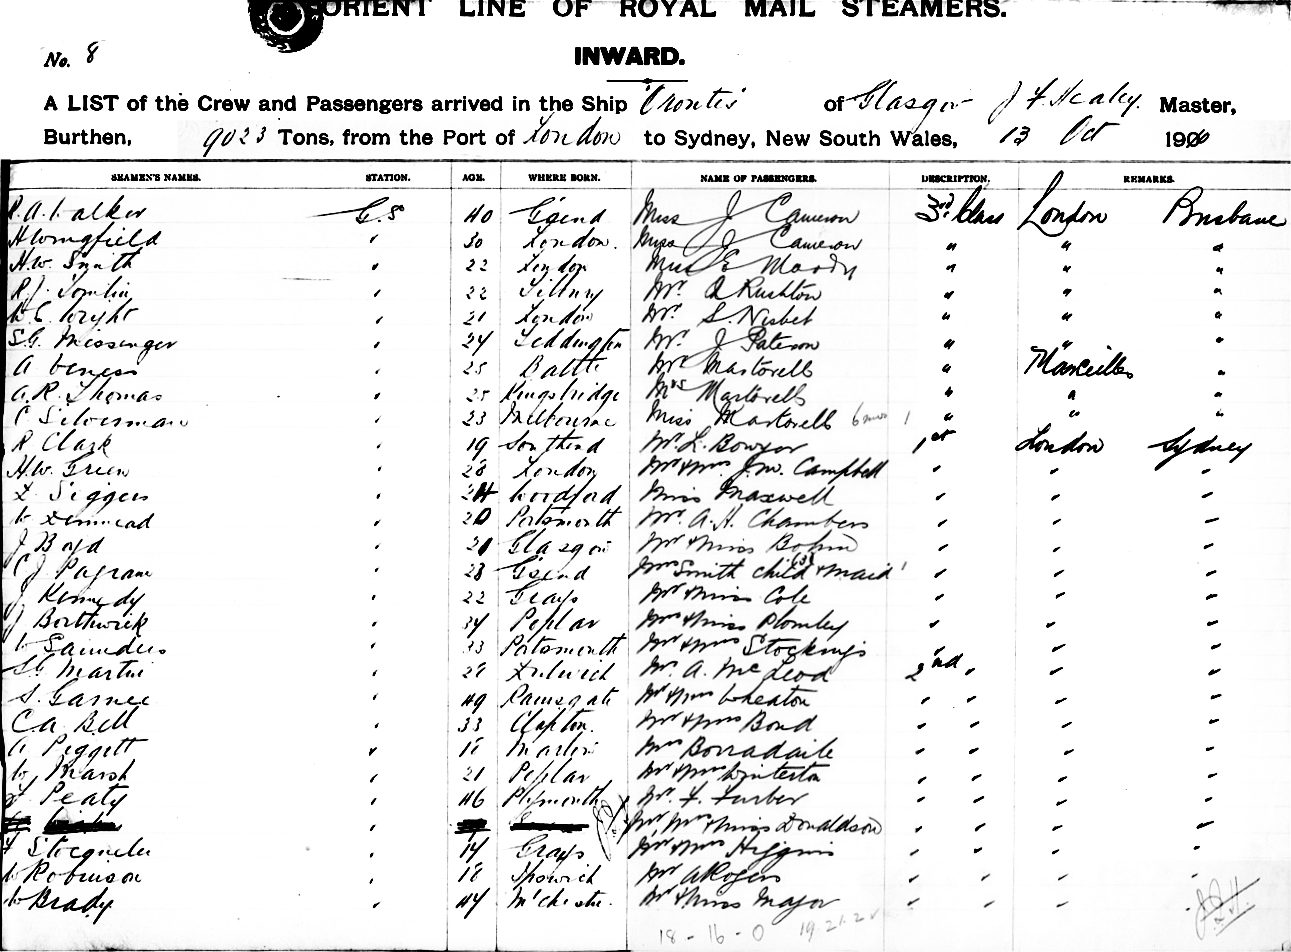 ORIENT LINE OF ROYAL MAIL STEAMERS.
No. 8
INWARD.
A LIST of the Crew and Passengers arrived in the Ship Orontes of Glasgow J F Healey. Master,
Burthen, 9023 Tons, from the Port of London to Sydney, New South Wales, 13 Oct 1906
SEAMEN'S NAMES. STATION. AGE. WHERE BORN. NAME OF PASSENGERS. DESCRIPTION. REMARKS.
R. A. Walker G.S 40 G'send Miss J Cameron 3rd Class London Brisbane
H Wingfield " 30 London. Miss J Cameron " " "
H.W. Smith " 22 London Miss E Moody " " "
R. J. Tomlin " 22 Tilbury Mr. A Rushton " " "
W. C. Wright " 21 London Mr. S. Nisbet " " "
S.G. Messenger " 24 Teddington Mr. J Paterson " " "
A " 25 Battle Mr Martorells " Marseilles "
A. R. Thomas " 25 Kingsbridge Mrs Martorells " " "
C Silverman " 23 Melbourne Miss Martorells 6 mos 1 " " "
R Clark " 19 Southend Mr. L. Bowyer 1st London Sydney
H.W. Green " 28 London Mr & Mrs. J.W. Campbell " " "
Siggers " 24 Woodford Miss Maxwell " " "
W Denmead " 20 Portsmouth Mr. A. H. Chambers " " "
J Boyd " 21 Glasgow Mr & Miss Bohm " " "
C J Pagram " 28 G'send Mrs Smith child (3) & maid " " "
J Kennedy " 22 Grays Mr & Miss Cole " " "
J Borthwick " 34 Poplar Mrs & Miss Plomley " " "
W Saunders " 33 Portsmouth Mr & Mrs Stockings " " "
Martin " 28 Dulwich Mr. A. McLeod 2nd " " "
S. Garnee " 49 Ramsgate Mr & Mrs Wheaton " " " "
C.A. Bell " 33 Clapton. Mr & Mrs Bond " " " "
A Piggott " 18 Mrs Borradaile " " " "
W, Marsh " 21 Poplar Mr & Mrs Winterton " " " "
Peaty " 46 Plymouth Mr. F. Furber " " " "
Mr, Mrs & Miss Donaldson " " " "
Stocqueler " 14 Grays Mr & Mrs Higgins " " " "
W Robinson " 18 Ipswich Mr A Rogers " " " "
W Brady " 44 M'chester Mr & Miss Major " " " "
18 - 16 - 0 19.21.2